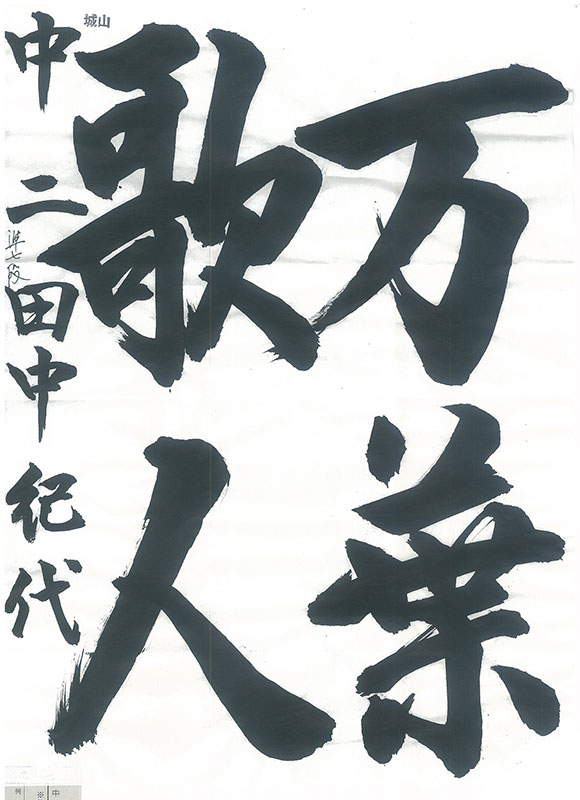 万葉
歌人
中二 田中紀代
準七段
城山
例 ※ 中